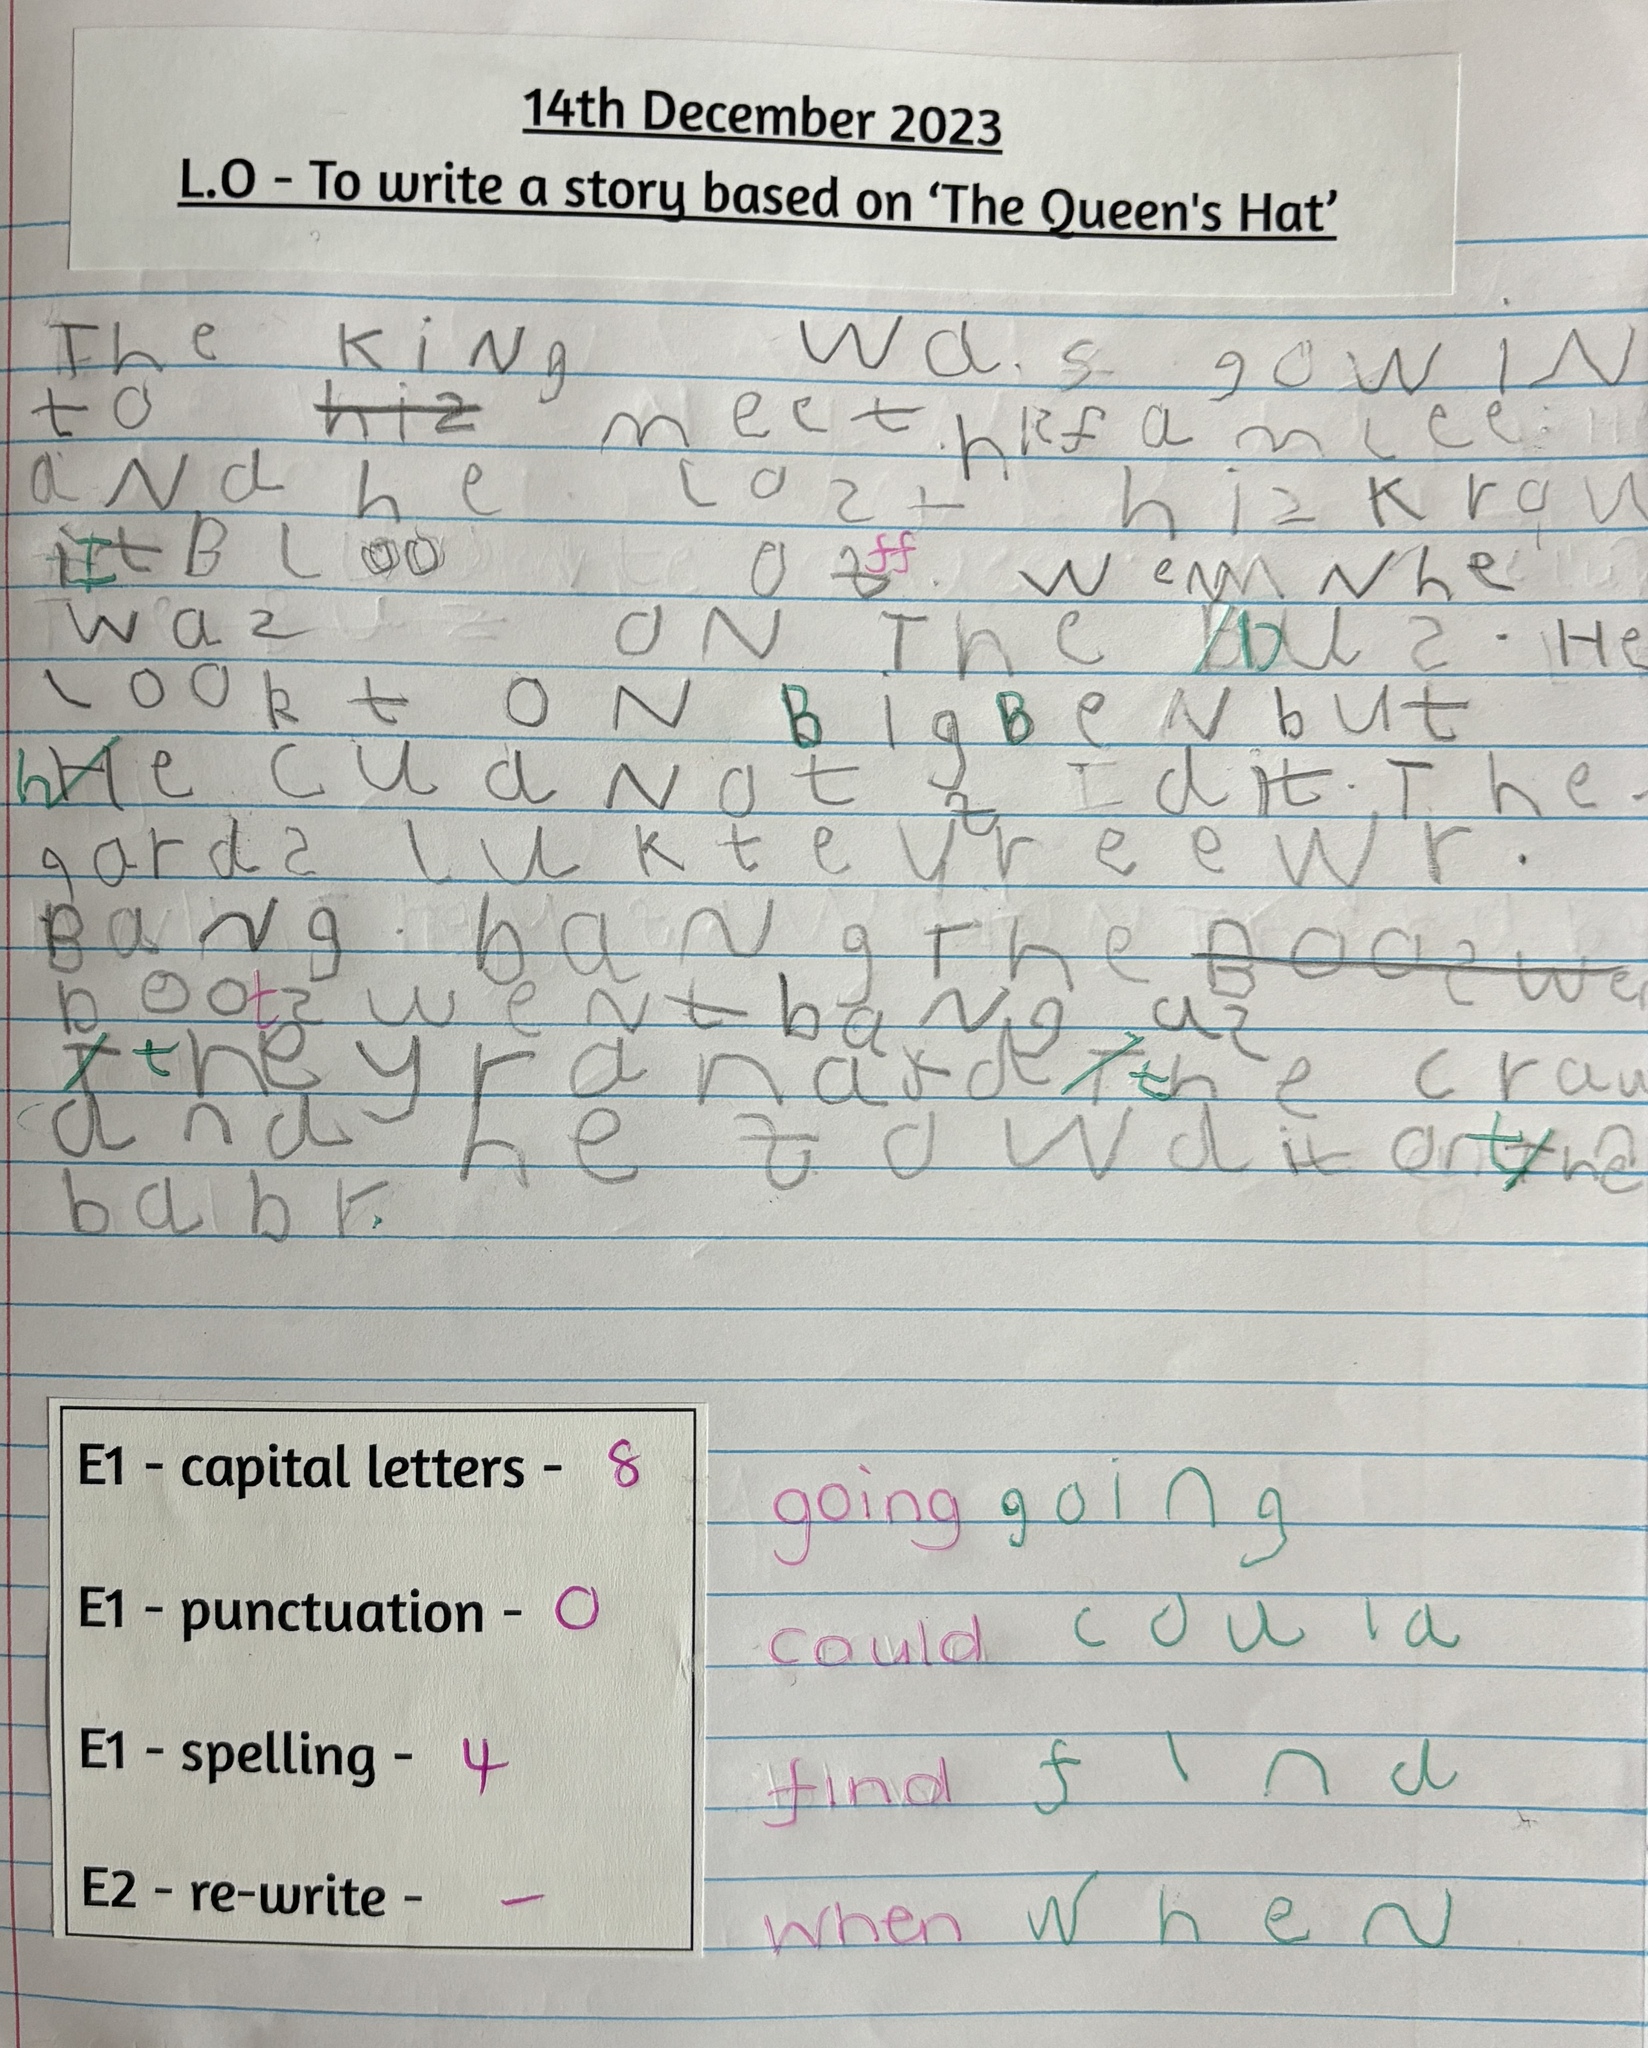 14th December 2023
L.O - To write a story based on 'The Queen's Hat'
The King was gowiN
to hiz meet hiz famleee
aNd he lost hiz Krau
It Bloo off. wen he
waz ON The buz. He
lookt ON Big BeN but
he cud Not fId it. The
gardz lukt evreewr.
BaNg baNg The Booswe
boots weNt baNg az
they rd nard the crau
and he fowd it on the
babr.
E1 - capital letters - 8
E1 - punctuation - 0
E1 - spelling - 4
E2 - re-write - –
going going
could could
find find
when wheN